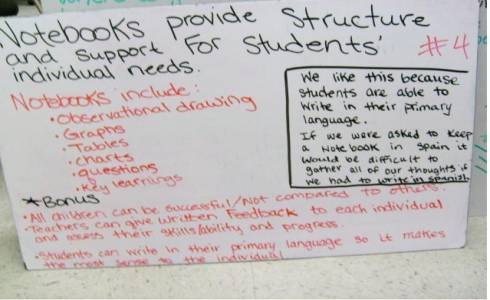 Notebooks provide Structure
and support For Students'
individual needs.
#4
Notebooks include:
• Observational drawing
• Graphs
• Tables
• charts
• questions
• key learnings
We like this because
students are able to
write in their primary
language.
If we were asked to keep
a notebook in spain it
would be difficult to
gather all of our thoughts if
we had to write in spanish.
*Bonus
• All children can be successful/Not compared to others.
• Teachers can give written Feedback to each individual
and assess their skills/ability and progress.
• Students can write in their primary language so it makes
the most sense to the individual